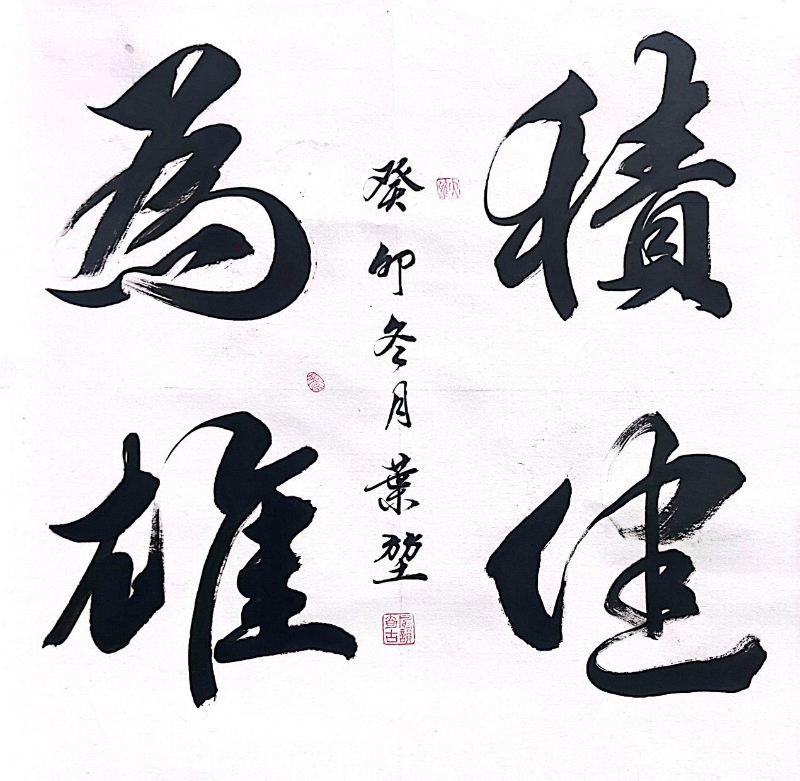 積健
為雄
癸卯冬月葉堃